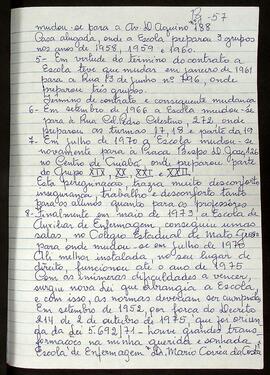 Pg-57
mudou-se para a Av. D. Aquino 188
Casa alugada, onde a Escola preparou 3 grupos
nos anos de 1958, 1959 e 1960.
5- Em virtude do término do contrato a
Escola teve que mudar em janeiro de 1961
para a Rua 13 de junho nº 796, onde
preparou três grupos.
Término de contrato e consequente mudança
6- Em setembro de 1966 a Escola mudou-se
para a Rua Cel. Pedro Celestino, 272, onde
preparou as turmas 17, 18 e parte da 19.
7- Em julho de 1970 a Escola mudou-se
novamente para a Praça Bispo D. José, 126
no Centro de Cuiabá, onde preparou parte
do Grupo XIX, XX, XXI e XXII.
Esta peregrinação trazia muito desconforto
insegurança, trabalho e desconforto tanto
para os alunos quanto para os professores
8- Finalmente em maio de 1973, a Escola de
Auxiliar de Enfermagem, conseguiu umas
salas, no Colégio Estadual de Mato Grosso
para onde mudou-se em julho de 1973
Ali melhor instalada, no seu lugar de
direito, funcionou até o ano de 1975
Com as inúmeras dificuldades a vencer,
surgiu nova lei que abrangia a Escola,
e com isso, as normas deveriam ser cumpridas
Em setembro de 1952, por força do Decreto
214 de 2 de outubro de 1975, que foi oriun
da da lei 5.692/71 - houve grandes trans
formações na minha querida e sonhada
Escola de Enfermagem "Dr. Mario Corrêa da Costa"